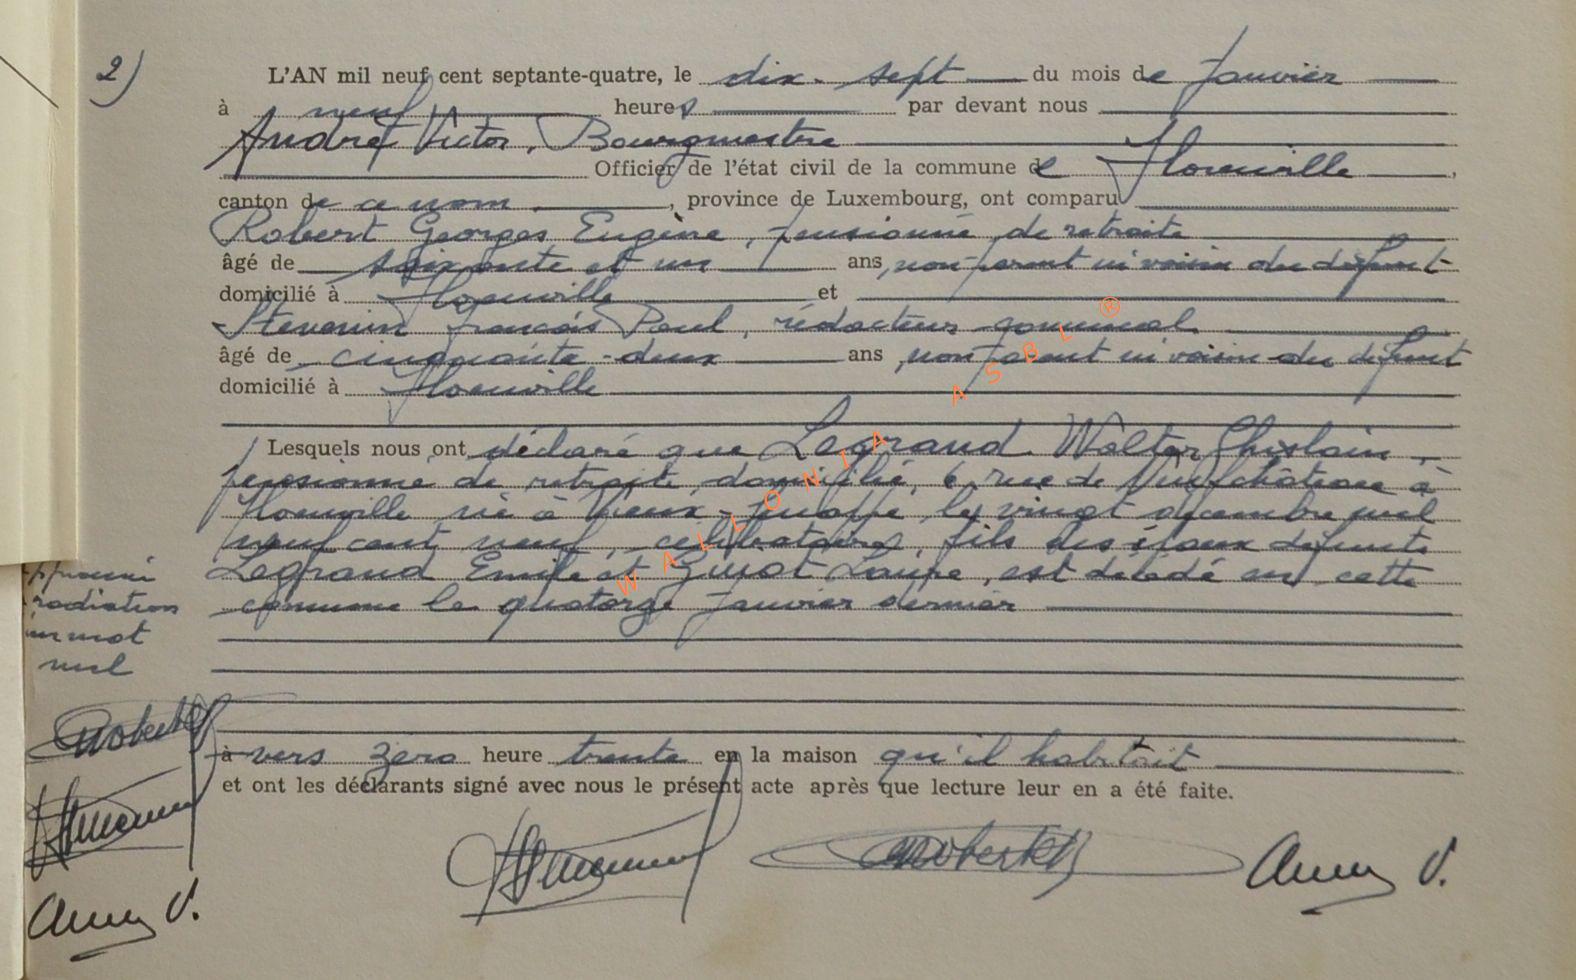 2)
L'AN mil neuf cent septante-quatre, le dix-sept du mois de Janvier
à neuf heures par devant nous
André Victor, Bourgmestre
Officier de l'état civil de la commune de Florenville,
canton de ce nom, province de Luxembourg, ont comparu
Robert Georges Eugène, pensionné de retraite
âgé de soixante et un ans, non parent ni voisin du défunt
domicilié à Florenville et
Stevenin François Paul, rédacteur communal
âgé de cinquante-deux ans, non parent ni voisin du défunt
domicilié à Florenville
Lesquels nous ont déclaré que Legrand Walter Ghislain,
pensionné de retraite, domicilié, 6, rue de Neufchâteau à
Florenville né à Vieux-Genappe, le vingt décembre mil
neuf cent neuf, célibataire, fils des époux défunts
Legrand Emile et Laure, est décédé en cette
commune le quatorze Janvier dernier
à vers zéro heure trente en la maison qu'il habitait
et ont les déclarants signé avec nous le présent acte après que lecture leur en a été faite.
radiation
un mot
nul
WALLONIA ASBL ®